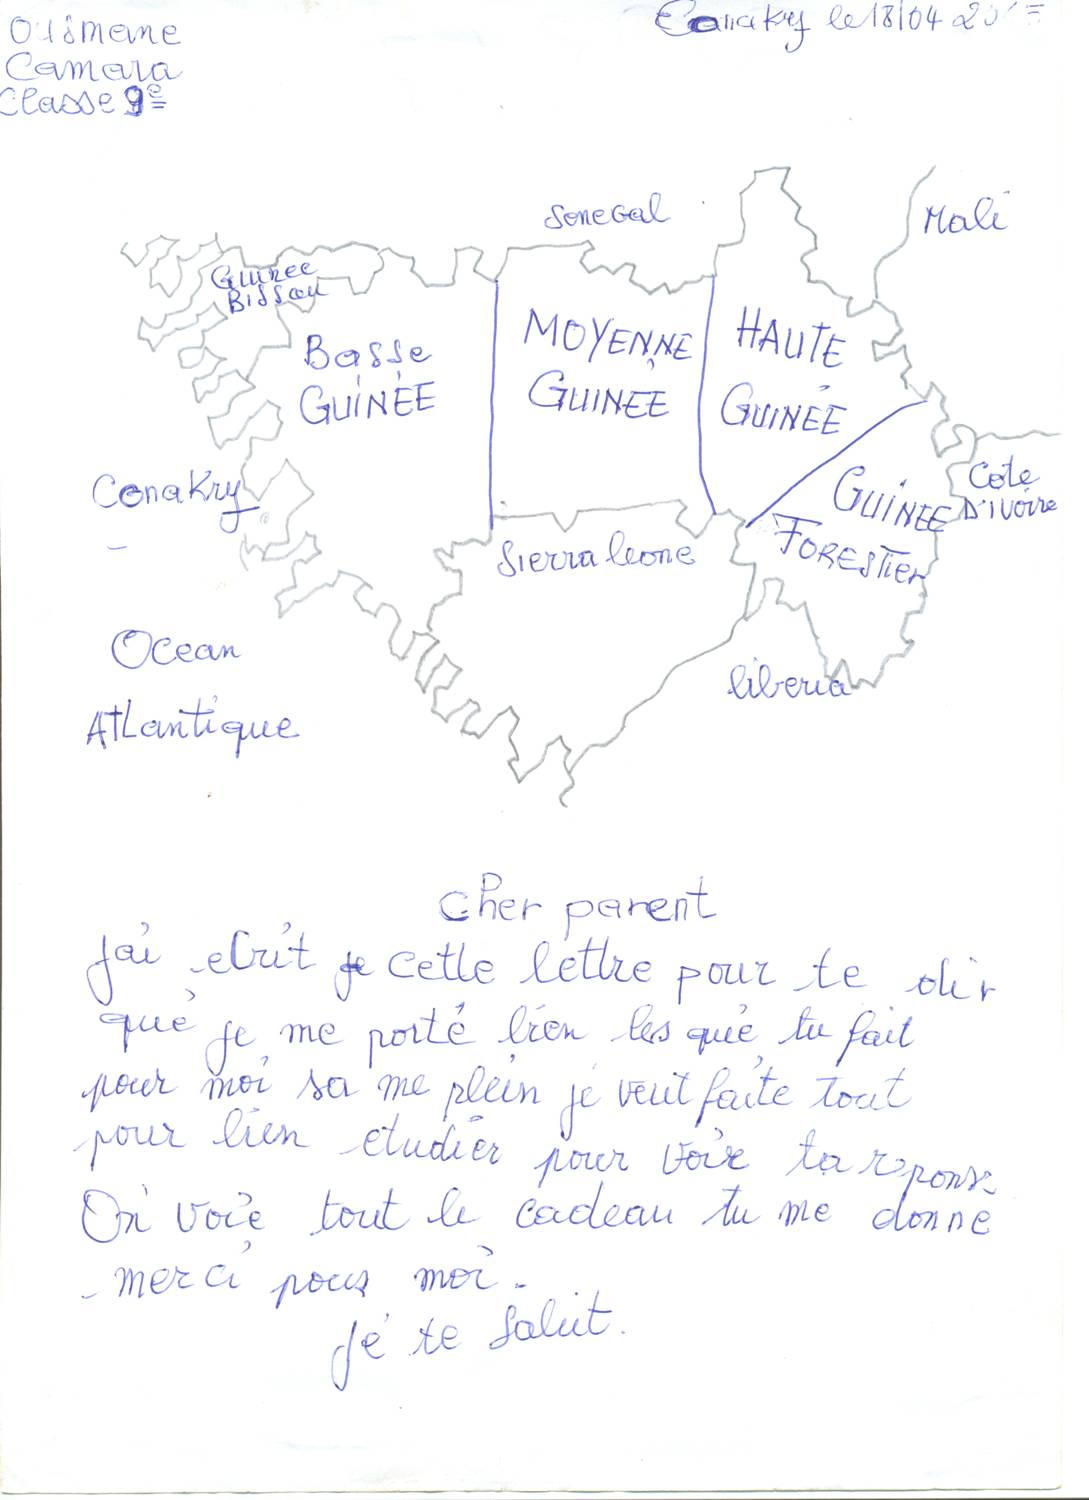 Ousmane
Camara
Classe 9e
Conakry le 18/04 20
Senegal
Mali
Guinee
Bissau
Basse
GUINÉE
MOYENNE
GUINEE
HAUTE
GUINÉE
GUINEE
FORESTier
Cote
D'ivoire
Conakry
Sierra leone
Ocean
Atlantique
liberia
cher parent
J'ai ecrit je cette lettre pour te dir
que je me porte bien les que tu fait
pour moi sa me plein je veut faite tout
pour bien etudier pour voire ta reponse
On voie tout le cadeau tu me donne
merci pour moi.
Je te salut.